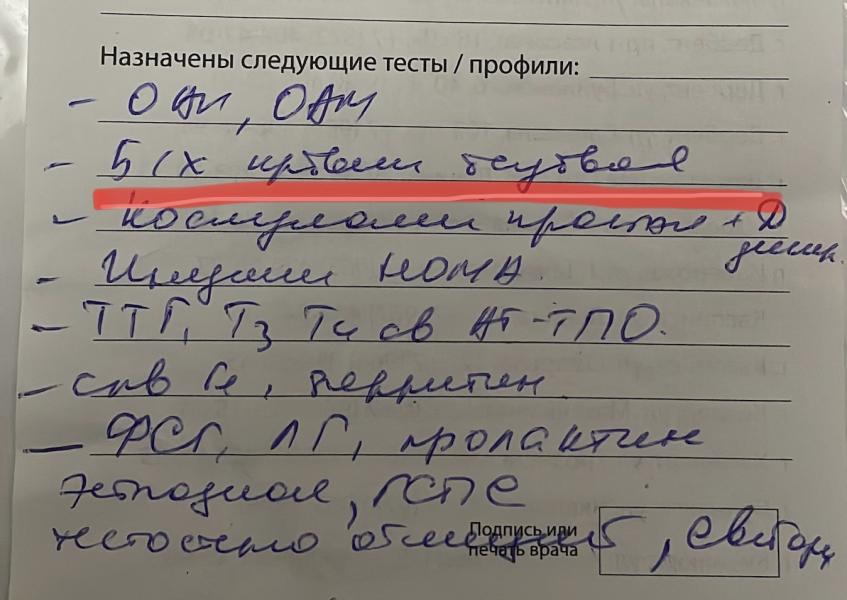 Назначены следующие тесты / профили:
- ОАК, ОАМ
- Б/Х крови
- простая + Д димер.
- Индекс НОМА
- ТТГ, Т3 Т4 св АТ-ТПО.
- Fe, ферритин
- ФСГ, ЛГ, пролактин
эстрадиол, ГСПГ
тестостерон общий
Подпись или
печать врача